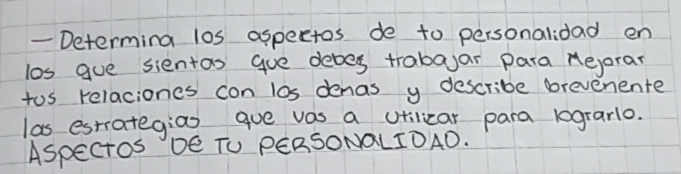 — Determina los aspectos de to personalidad en
los que sientas que debes trabajar para Mejorar
tus relaciones con los demas y describe brevemente
las estrategias que vas a utilizar para lograrlo.
ASPECTOS DE TU PERSONALIDAD.